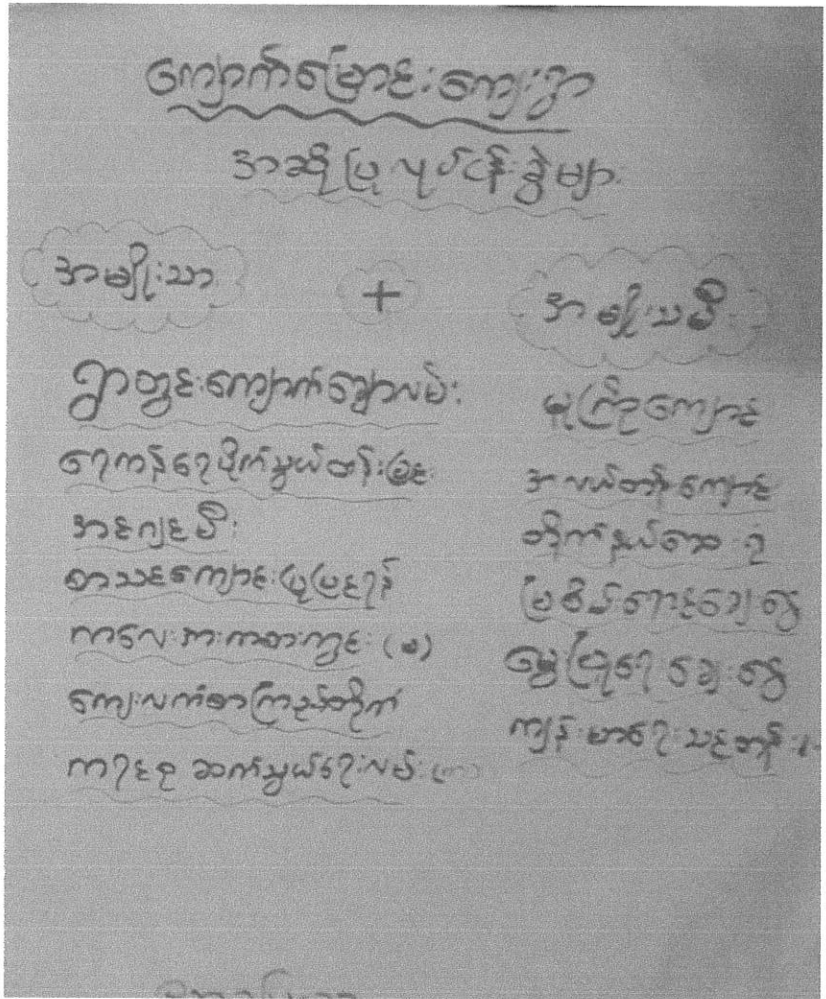 ကျောက်မြောင်းကျေးရွာ
အဆိုပြုလုပ်ငန်းခွဲများ
အမျိုးသား
+
အမျိုးသမီး
ရွာတွင်းကျောက်ချောလမ်း
ရေကန်ရေပိုက်သွယ်တန်းခြင်း
အင်ဂျင်မီး
စာသင်ကျောင်းပြုပြင်ရန်
ကလေးကစားကွင်း (မ)
ကျေးလက်စာကြည့်တိုက်
ကရင်စု ဆက်သွယ်ရေးလမ်း
မူကြိုကျောင်း
အလယ်တန်းကျောင်း
တိုက်နယ်ဆေးရုံ
မြစိမ်းရောင်ချေးငွေ
မွေးမြူရေးချေးငွေ
ကျန်းမာရေးသင်တန်း